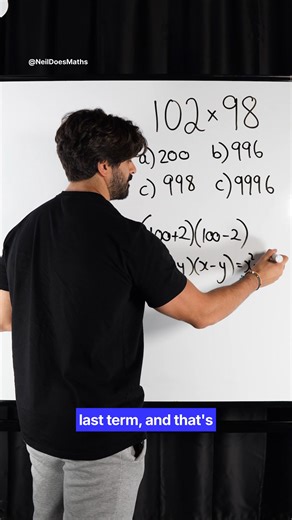 @NeilDoesMaths
102×98
a) 200 b) 996
c) 998 c) 9996
(100+2)(100-2)
y)(x-y)=x²
last term, and that's